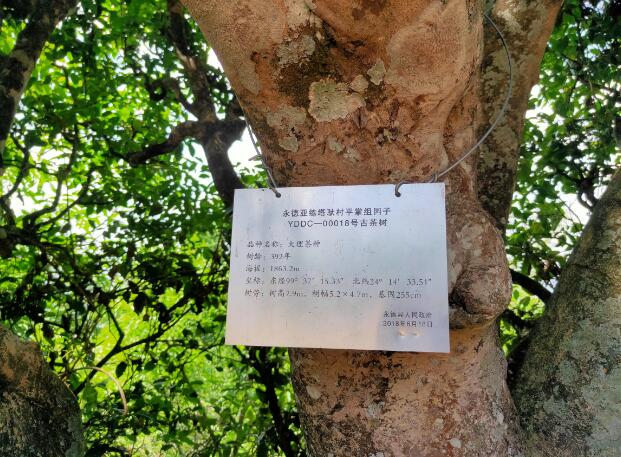 永德亚练塔驮村平掌组同子
YDDC—00018号古茶树
品种名称：大理茶种
树龄：392年
海拔：1863.2m
坐标：东经99° 37′ 15.33″ 北纬24° 14′ 33.51″
树势：树高7.9m，树幅5.2×4.7m，基围255cm
永德县人民政府
2018年6月18日